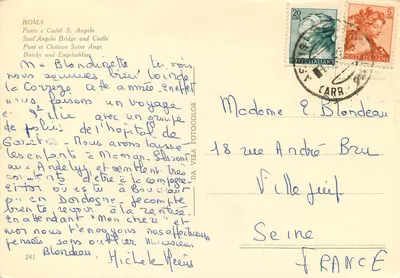 ROMA
Ponte e Castel S. Angelo
Sant'Angelo Bridge and Castle
Pont et Château Saint Ange
Brücke und Engelsburg
Ma Blondinette tu vois,
nous sommes bien loin de
la Corrèze cette année. En effet
nous faisons un voyage
en Italie avec un groupe
de de l'hôpital de
Nous avons laissé
les enfants à Maman. Ils sont
aux Andelys et semblent très
contents d'être à la campagne
Et toi où es tu à
ou en Dordogne. Je compte
bien te revoir à la rentrée.
En attendant "Mon cheri" et
moi nous t'envoyons nos affectueuses
pensées sans oublier Monsieur
Blondeau. Michèle
241
DA VERA FOTOCOLOR
20
POSTE ITALIANE
5
POSTE ITALIANE
(ARR.
Madame E. Blondeau
18 rue André Bru
Villejuif
Seine
FRANCE